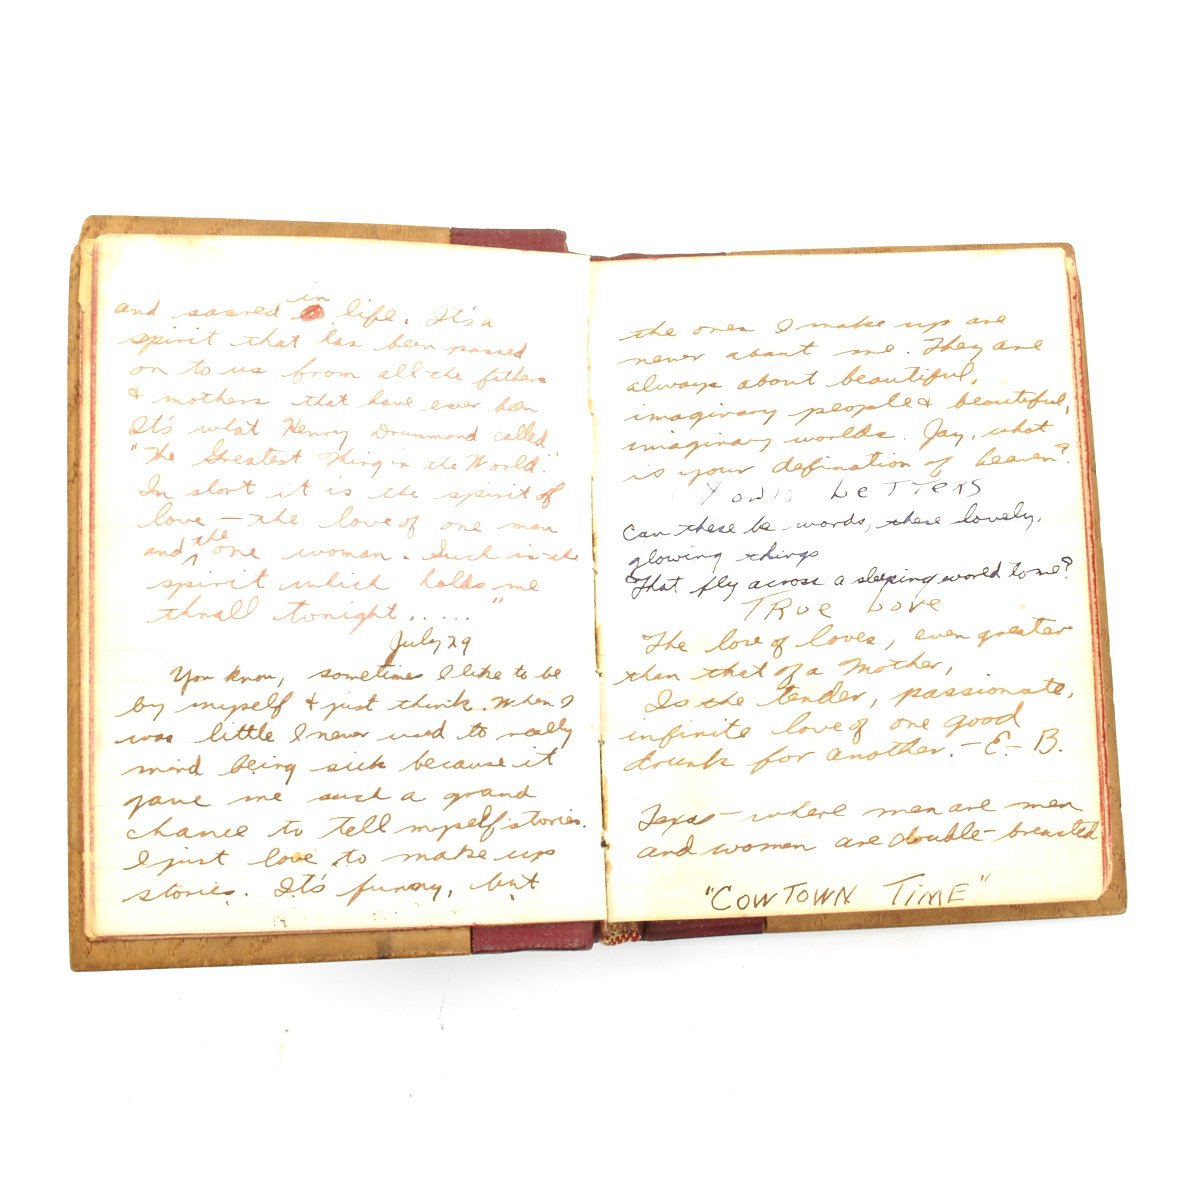 and sacred in life. It's a
spirit that has been passed
on to us from all the fathers
& mothers that have ever been
It's what Henry Drummond called
"The Greatest Thing in the World."
In short it is the spirit of
love — the love of one man
and the one woman. Such is the
spirit which holds me
thrall tonight....."
July 29
You know, sometimes I like to be
by myself & just think. When I
was little I never used to really
mind being sick because it
gave me such a grand
chance to tell myself stories.
I just love to make up
stories. It's funny, but
the ones I make up are
never about me. They are
always about beautiful,
imaginary people & beautiful,
imaginary worlds. Jay, what
is your defination of heaven?
Your Letters
Can these be words, these lovely,
glowing things
That fly across a sleeping world to me?
TRUE LOVE
The love of loves, even greater
than that of a Mother,
Is the tender, passionate,
infinite love of one good
drunk for another. — E — B.
Texas — where men are men
and women are double-breasted
"COWTOWN TIME"